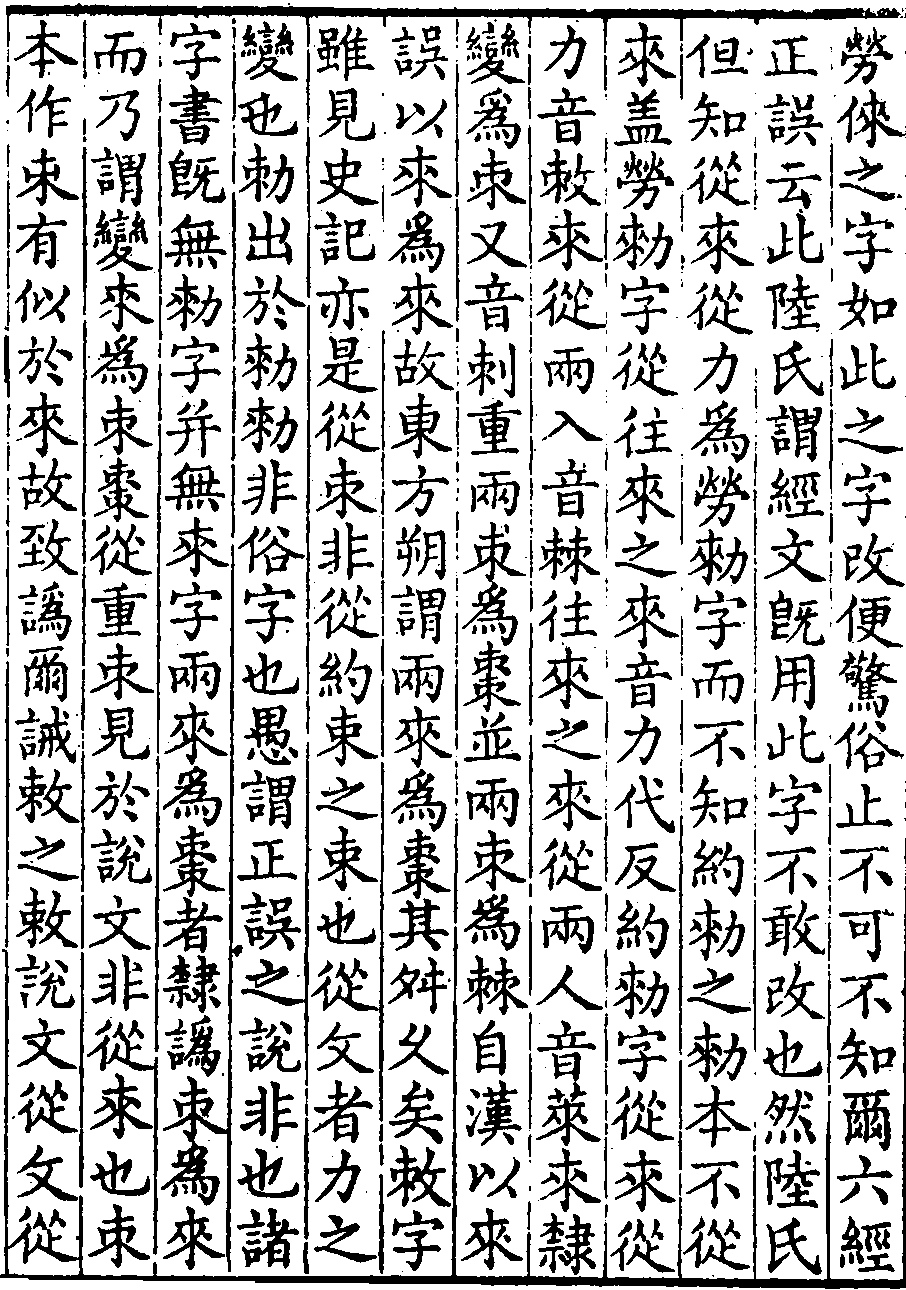 勞倈之字如此之字改便驚俗止不可不知爾六經
正誤云此陸氏謂經文旣用此字不敢改也然陸氏
但知從來從力爲勞勑字而不知約勑之勑本不從
來盖勞勑字從往來之來音力代反約勑字從來從
力音敕來從兩入音棘往來之來從兩人音萊來隸
變爲朿又音刺重兩朿爲棗並兩朿爲棘自漢以來
誤以來爲來故東方朔謂兩來爲棗其舛乆矣敕字
雖見史記亦是從朿非從約束之束也從攵者力之
變也勅出於勑勑非俗字也愚謂正誤之說非也諸
字書旣無勑字并無來字兩來爲棗者隸譌朿爲來
而乃謂變來爲朿棗從重朿見於說文非從來也朿
本作朿有似於來故致譌爾誡敕之敕說文從攵從